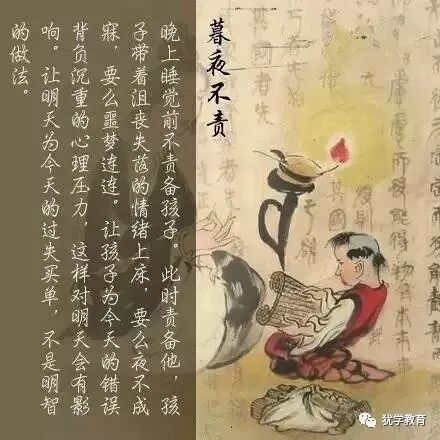 暮夜不责
晚上睡觉前不责备孩子。此时责备他，孩
子带着沮丧失落的情绪上床，要么夜不成
寐，要么噩梦连连。让孩子为今天的错误
背负沉重的心理压力，这样对明天会有影
响。让明天为今天的过失买单，不是明智
的做法。
犹学教育